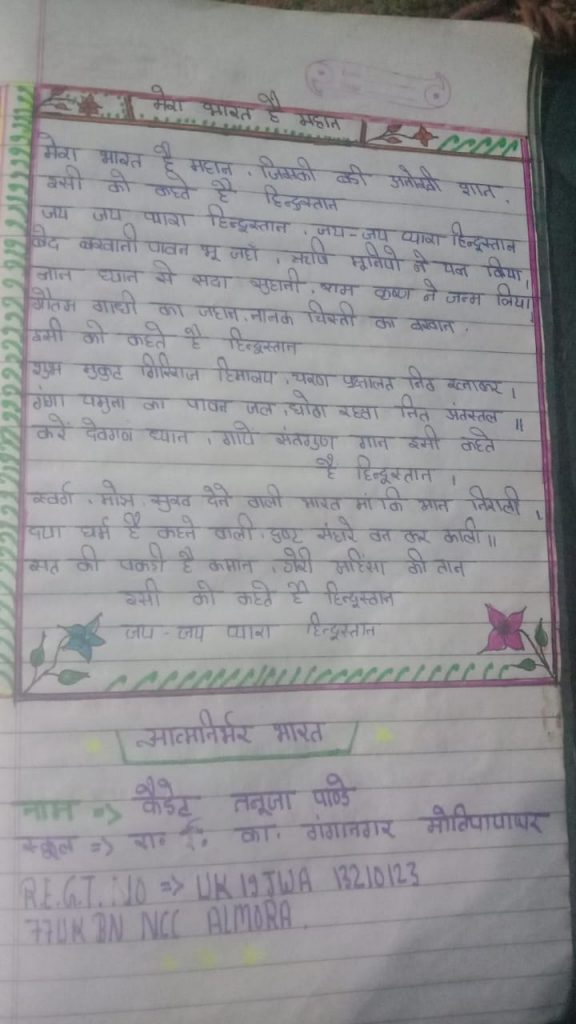 मेरा भारत है महान
मेरा भारत है महान, जिसकी की अनोखी शान,
इसी को कहते है हिन्दुस्तान
जय जय प्यारा हिन्दूस्तान, जय-जय प्यारा हिन्दूस्तान
वेद बखानी पावन भू जहाँ, ऋषि मुनियो ने यज्ञ किया,
ज्ञान ध्यान से सदा सुहानी, राम कृष्ण ने जन्म लिया।
गौतम गांधी का जहान, नानक चिस्ती का बखान,
इसी को कहते है हिन्दुस्तान
शुभ्र मुकुट गिरिराज हिमालय, चरण नित रत्नाकर।
गंगा यमुना का पावन जल, धोता रहता नित अंतस्तल॥
करें देवगण ध्यान, गायें संतगुण गान इसी कहते
है हिन्दूस्तान।
स्वर्ग, मोक्ष, सुख देने वाली भारत मां कि निराली,
दया धर्म है कहने वाली, दुष्ट संहारे बन कर काली॥
सत की पकड़ी है कमान, अहिंसा की तान
इसी को कहते है हिन्दुस्तान
जय-जय प्यारा हिन्दूस्तान
आत्मनिर्भर भारत
नाम => कैडेट तनूजा पाण्डे
स्कूल => रा. इ. का. गंगानगर
REGT. NO => UK19JWA 13210123
77UK BN NCC ALMORA.